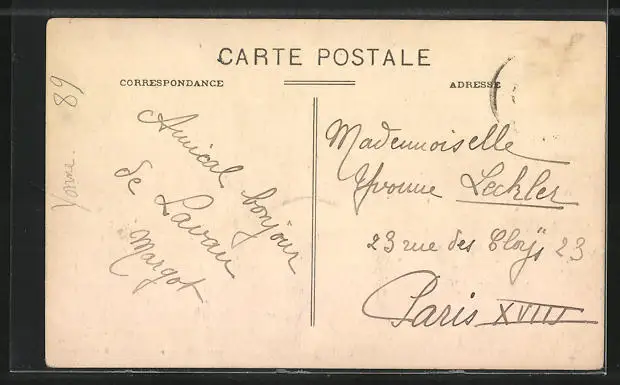 CARTE POSTALE
CORRESPONDANCE
ADRESSE
Yonne. 89
Amical bonjour
de Lavau
Margot
Mademoiselle
Yvonne Lechler
23 rue des Cloÿs 23
Paris XVIII